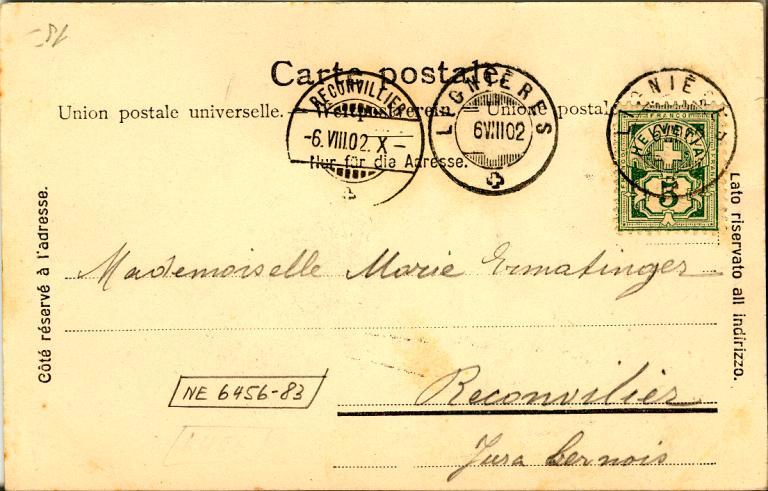 Carte postale.
Union postale universelle. — Weltpostverein. — Unione postale
Nur für die Adresse.
RECONVILLIER
-6.VIII.02. X-
LIGNIÈRES
6VIII02
LIGNIÈRES
FRANCO
HELVETIA
5
Côté réservé à l'adresse.
Lato riservato all indirizzo.
Mademoiselle Marie Ermatinger
NE 6456-83
Reconvilier
Jura bernois